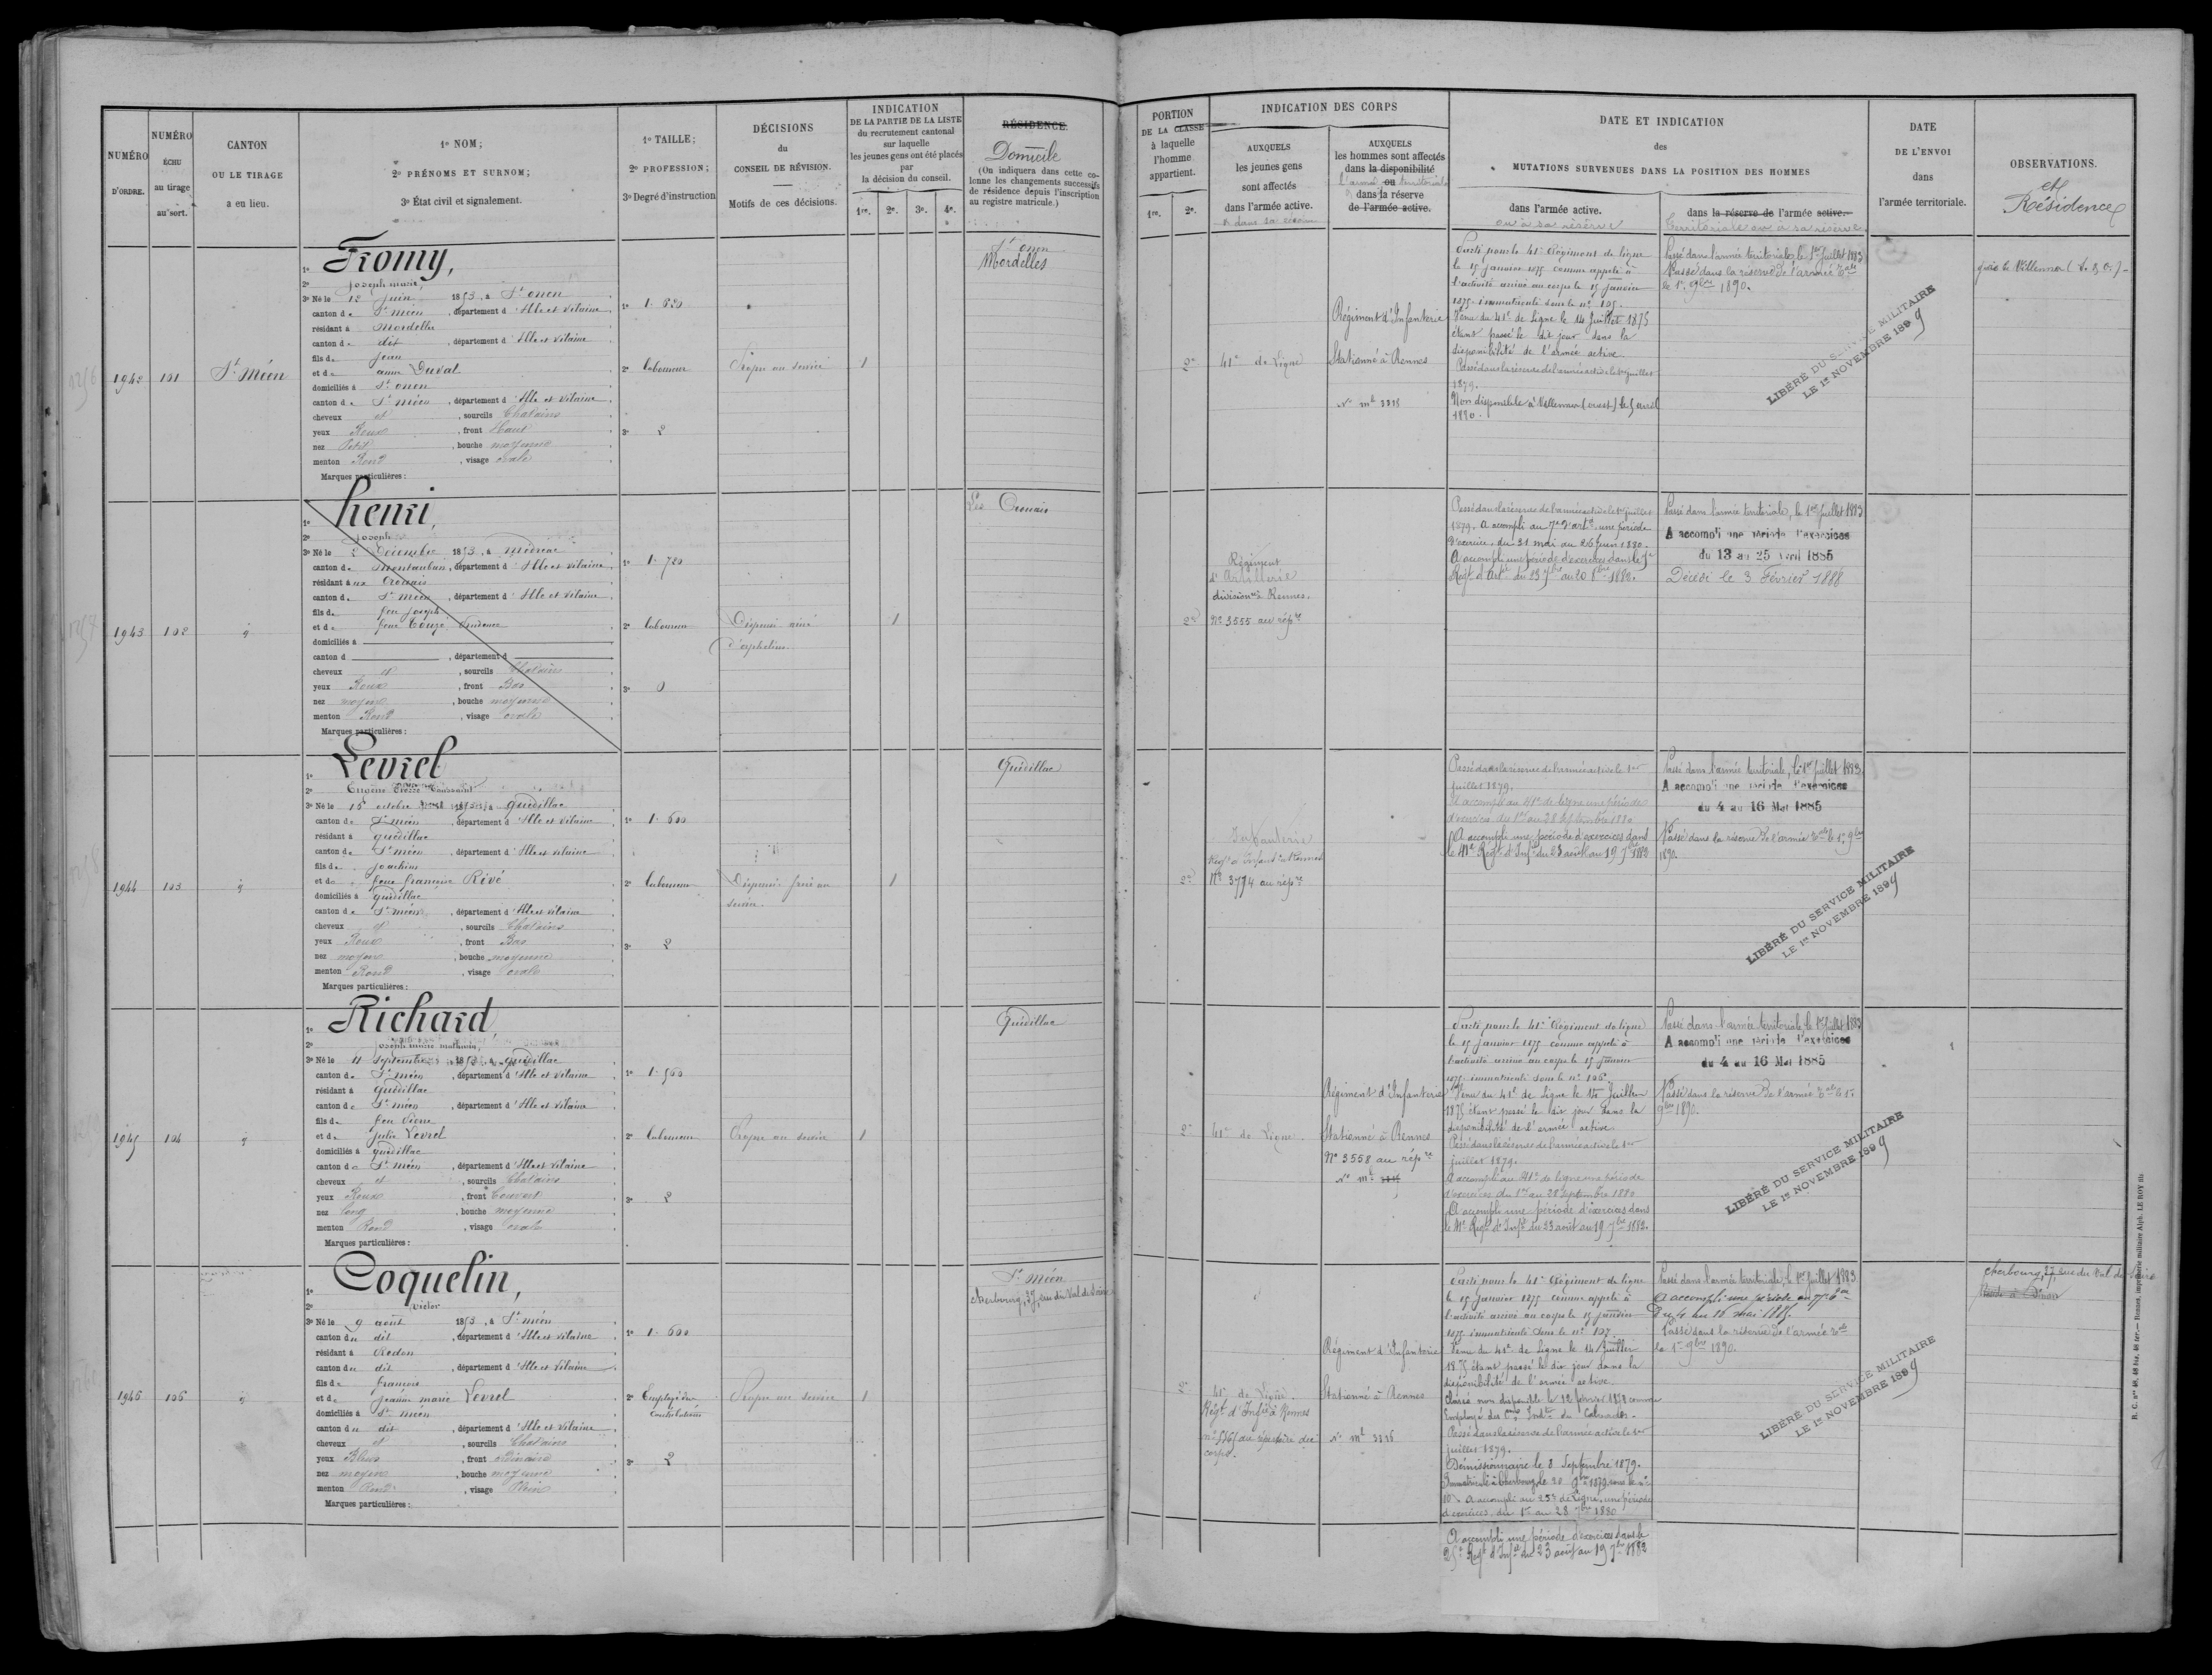 NUMÉRO D'ORDRE.
NUMÉRO ÉCHU au tirage au sort.
CANTON OU LE TIRAGE a eu lieu.
1º NOM;
2º PRÉNOMS ET SURNOM;
3º État civil et signalement.
1º TAILLE;
2º PROFESSION;
3º Degré d'instruction
DÉCISIONS du CONSEIL DE RÉVISION.
Motifs de ces décisions.
INDICATION
DE LA PARTIE DE LA LISTE
du recrutement cantonal
sur laquelle
les jeunes gens ont été placés
par
la décision du conseil.
1re. 2e. 3e. 4e.
RÉSIDENCE
Domicile
(On indiquera dans cette colonne les changements successifs de résidence depuis l'inscription au registre matricule.)
PORTION DE LA CLASSE à laquelle l'homme appartient.
1re. 2e.
INDICATION DES CORPS
AUXQUELS les jeunes gens sont affectés dans l'armée active.
AUXQUELS les hommes sont affectés dans la disponibilité ou dans la réserve de l'armée active.
DATE ET INDICATION
des
MUTATIONS SURVENUES DANS LA POSITION DES HOMMES
dans l'armée active.
ou à sa réserve
dans la réserve de l'armée active.
Territoriale ou à sa réserve
DATE DE L'ENVOI dans l'armée territoriale.
OBSERVATIONS.
et Résidence
1942
101
St Méen
1º Fromy,
2º Joseph marie,
3º Né le 12 Juin 1853, à St onen
canton de St méen, département d'Ille et Vilaine
résidant à Mordelles
canton de dit, département d'Ille et Vilaine
fils de Jean
et de anne Duval
domiciliés à St onen
canton de St méen, département d'Ille et Vilaine
cheveux et, sourcils Chatains
yeux Roux, front Haut
nez Petit, bouche moyenne
menton Rond, visage ovale
Marques particulières:
1º 1. 620
2º laboureur
3º 2
Propre au service
1
St onen
Mordelles
2e
41e de Ligne
Régiment d'Infanterie
Stationné à Rennes
Nº ml 3315
Parti pour le 41e Régiment de ligne
le 15 janvier 1875 comme appelé à
l'activité arrivé au corps le 15 janvier
1875. immatriculé sous le nº 105.
Venu du 41e de Ligne le 14 Juillet 1875
étant passé le dit jour dans la
disponibilité de l'armée active.
Passé dans la réserve de l'armée active le 1er juillet
1879.
Non disponible à Villenner (ouest) le 5 avril
1880.
Passé dans l'armée territoriale, le 1er Juillet 1883
Passé dans la réserve de l'armée tale
le 1er 9bre 1890.
LIBÉRÉ DU SERVICE MILITAIRE
LE 1er NOVEMBRE 1899
1943
102
1º henri,
2º Joseph
3º Né le 2 Décembre 1853, à Médréac
canton de Montauban, département d'Ille et Vilaine
résidant à au Crouais
canton de St Méen, département d'Ille et Vilaine
fils de feu Joseph
et de feue Touzé, Prudence
domiciliés à
canton d, département d
cheveux et, sourcils Chatains
yeux Roux, front Bas
nez moyen, bouche moyenne
menton Rond, visage ovale
Marques particulières:
1º 1. 720
2º laboureur
3º 0
Dispensé ainé
d'orphelins.
1
Le Crouais
2e
Régiment
d'Artillerie
divisionre à Rennes.
Nº 3555 au réptre
Passé dans la réserve de l'armée active le 1er juillet
1879. A accompli au 7e d'artie une période
d'exercice, du 31 mai au 26 Juin 1880.
A accompli une période d'exercices dans le 7e
Régt d'Artie du 23 7bre au 20 8bre 1882.
Passé dans l'armée territoriale, le 1er Juillet 1883
A accompli une période d'exercices
du 13 au 25 Avril 1885
Décédé le 3 Février 1888
1944
103
1º Levrel
2º Eugène Pierre Toussaint
3º Né le 15 octobre 1853, à Quédillac
canton de St méen, département d'Ille et Vilaine
résidant à Quédillac
canton de St méen, département d'Ille et Vilaine
fils de Joachim
et de feue françoise Rivé
domiciliés à Quédillac
canton de St méen, département d'Ille et Vilaine
cheveux et, sourcils Chatains
yeux Roux, front Bas
nez moyen, bouche moyenne
menton Rond, visage ovale
Marques particulières:
1º 1. 600
2º laboureur
3º 2
Dispensé frère au
service.
1
Quédillac
2e
Infanterie
Régt d'Infant à Rennes
Nº 3774 au réptre
Passé dans la réserve de l'armée active le 1er
juillet 1879.
A accompli au 41e de ligne une période
d'exercices du 1er au 28 septembre 1880
A accompli une période d'exercices dans
le 41e Régt d'Infie du 23 août au 19 7bre 1882
Passé dans l'armée territoriale, le 1er Juillet 1883.
A accompli une période d'exercices
du 4 au 16 Mai 1885
Passé dans la réserve de l'armée tale le 1er 9bre
1890.
LIBÉRÉ DU SERVICE MILITAIRE
LE 1er NOVEMBRE 1899
1945
104
1º Richard,
2º Joseph marie mathurin,
3º Né le 11 Septembre 1853, à Quédillac
canton de St méen, département d'Ille et Vilaine
résidant à Quédillac
canton de St méen, département d'Ille et Vilaine
fils de feu Pierre
et de Julie Levrel
domiciliés à Quédillac
canton de St méen, département d'Ille et Vilaine
cheveux et, sourcils Chatains
yeux Roux, front Couvert
nez long, bouche moyenne
menton Rond, visage ovale
Marques particulières:
1º 1. 560
2º laboureur
3º 2
Propre au service
1
Quédillac
2e
41e de Ligne.
Régiment d'Infanterie
Stationné à Rennes
Nº 3558 au réptre
Nº ml
Parti pour le 41e Régiment de ligne
le 15 janvier 1875 comme appelé à
l'activité arrivé au corps le 15 janvier
1875. immatriculé sous le nº 106.
Venu du 41e de Ligne le 14 Juillet
1875 étant passé le dit jour dans la
disponibilité de l'armée active
Passé dans la réserve de l'armée active le 1er
juillet 1879.
A accompli au 41e de ligne une période
d'exercices du 1er au 28 septembre 1880
A accompli une période d'exercices dans
le 41e Régt d'Infie du 23 août au 19 7bre 1882.
Passé dans l'armée territoriale, le 1er Juillet 1883
A accompli une période d'exercices
du 4 au 16 Mai 1885
Passé dans la réserve de l'armée tale le 1er
9bre 1890.
LIBÉRÉ DU SERVICE MILITAIRE
LE 1er NOVEMBRE 1899
1946
106
1º Coquelin,
2º Victor
3º Né le 9 août 1853, à St méen
canton du dit, département d'Ille et Vilaine
résidant à Redon
canton du dit, département d'Ille et Vilaine
fils de François
et de jeanne marie Levrel
domiciliés à St méen
canton du dit, département d'Ille et Vilaine
cheveux et, sourcils Chatains
yeux Bleus, front ordinaire
nez moyen, bouche moyenne
menton Rond, visage Plein
Marques particulières:
1º 1. 600
2º Employé des
contributions
3º 2
Propre au service
1
St Méen
Cherbourg, 37, rue du Val de Saire
2e
41e de Ligne.
Régt d'Infie à Rennes
corps.
Régiment d'Infanterie
Stationné à Rennes
Nº ml 3326
Parti pour le 41e Régiment de ligne
le 15 janvier 1875 comme appelé à
l'activité arrivé au corps le 15 janvier
1875 immatriculé sous le nº 107
Venu du 41e de Ligne le 14 Juillet
1875 étant passé le dit jour dans la
disponibilité de l'armée active.
Classé non disponible le 12 février 1878 comme
Employé des Cons Indtes du Calvados.
Passé dans la réserve de l'armée active le 1er
juillet 1879.
Démissionnaire le 8 Septembre 1879.
A accompli au 25e de Ligne, une période
d'exercices, du 1er au 28 7bre 1880
A accompli une période d'exercices dans le
25e Régt d'Infie du 23 août au 19 7bre 1882
Passé dans l'armée territoriale, le 1er Juillet 1883
A accompli une période au 77e
Du 4 au 16 mai 1885.
Passé dans la réserve de l'armée tale
le 1er 9bre 1890.
LIBÉRÉ DU SERVICE MILITAIRE
LE 1er NOVEMBRE 1899
Cherbourg, 37, rue du Val de Saire
R. C. Nos 48, 48 bis, 48 ter. — Rennes, imprimerie militaire Alph. LE ROY fils